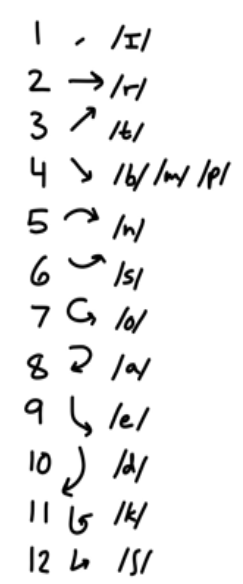 1 ˊ /I/
2 → /r/
3 ↗ /t/
4 ↘ /b/ /m/ /p/
5 ↷ /n/
6 ⤻ /s/
7 /o/
8 /a/
9 /e/
10 /d/
11 /k/
12 ↳ /ʃ/